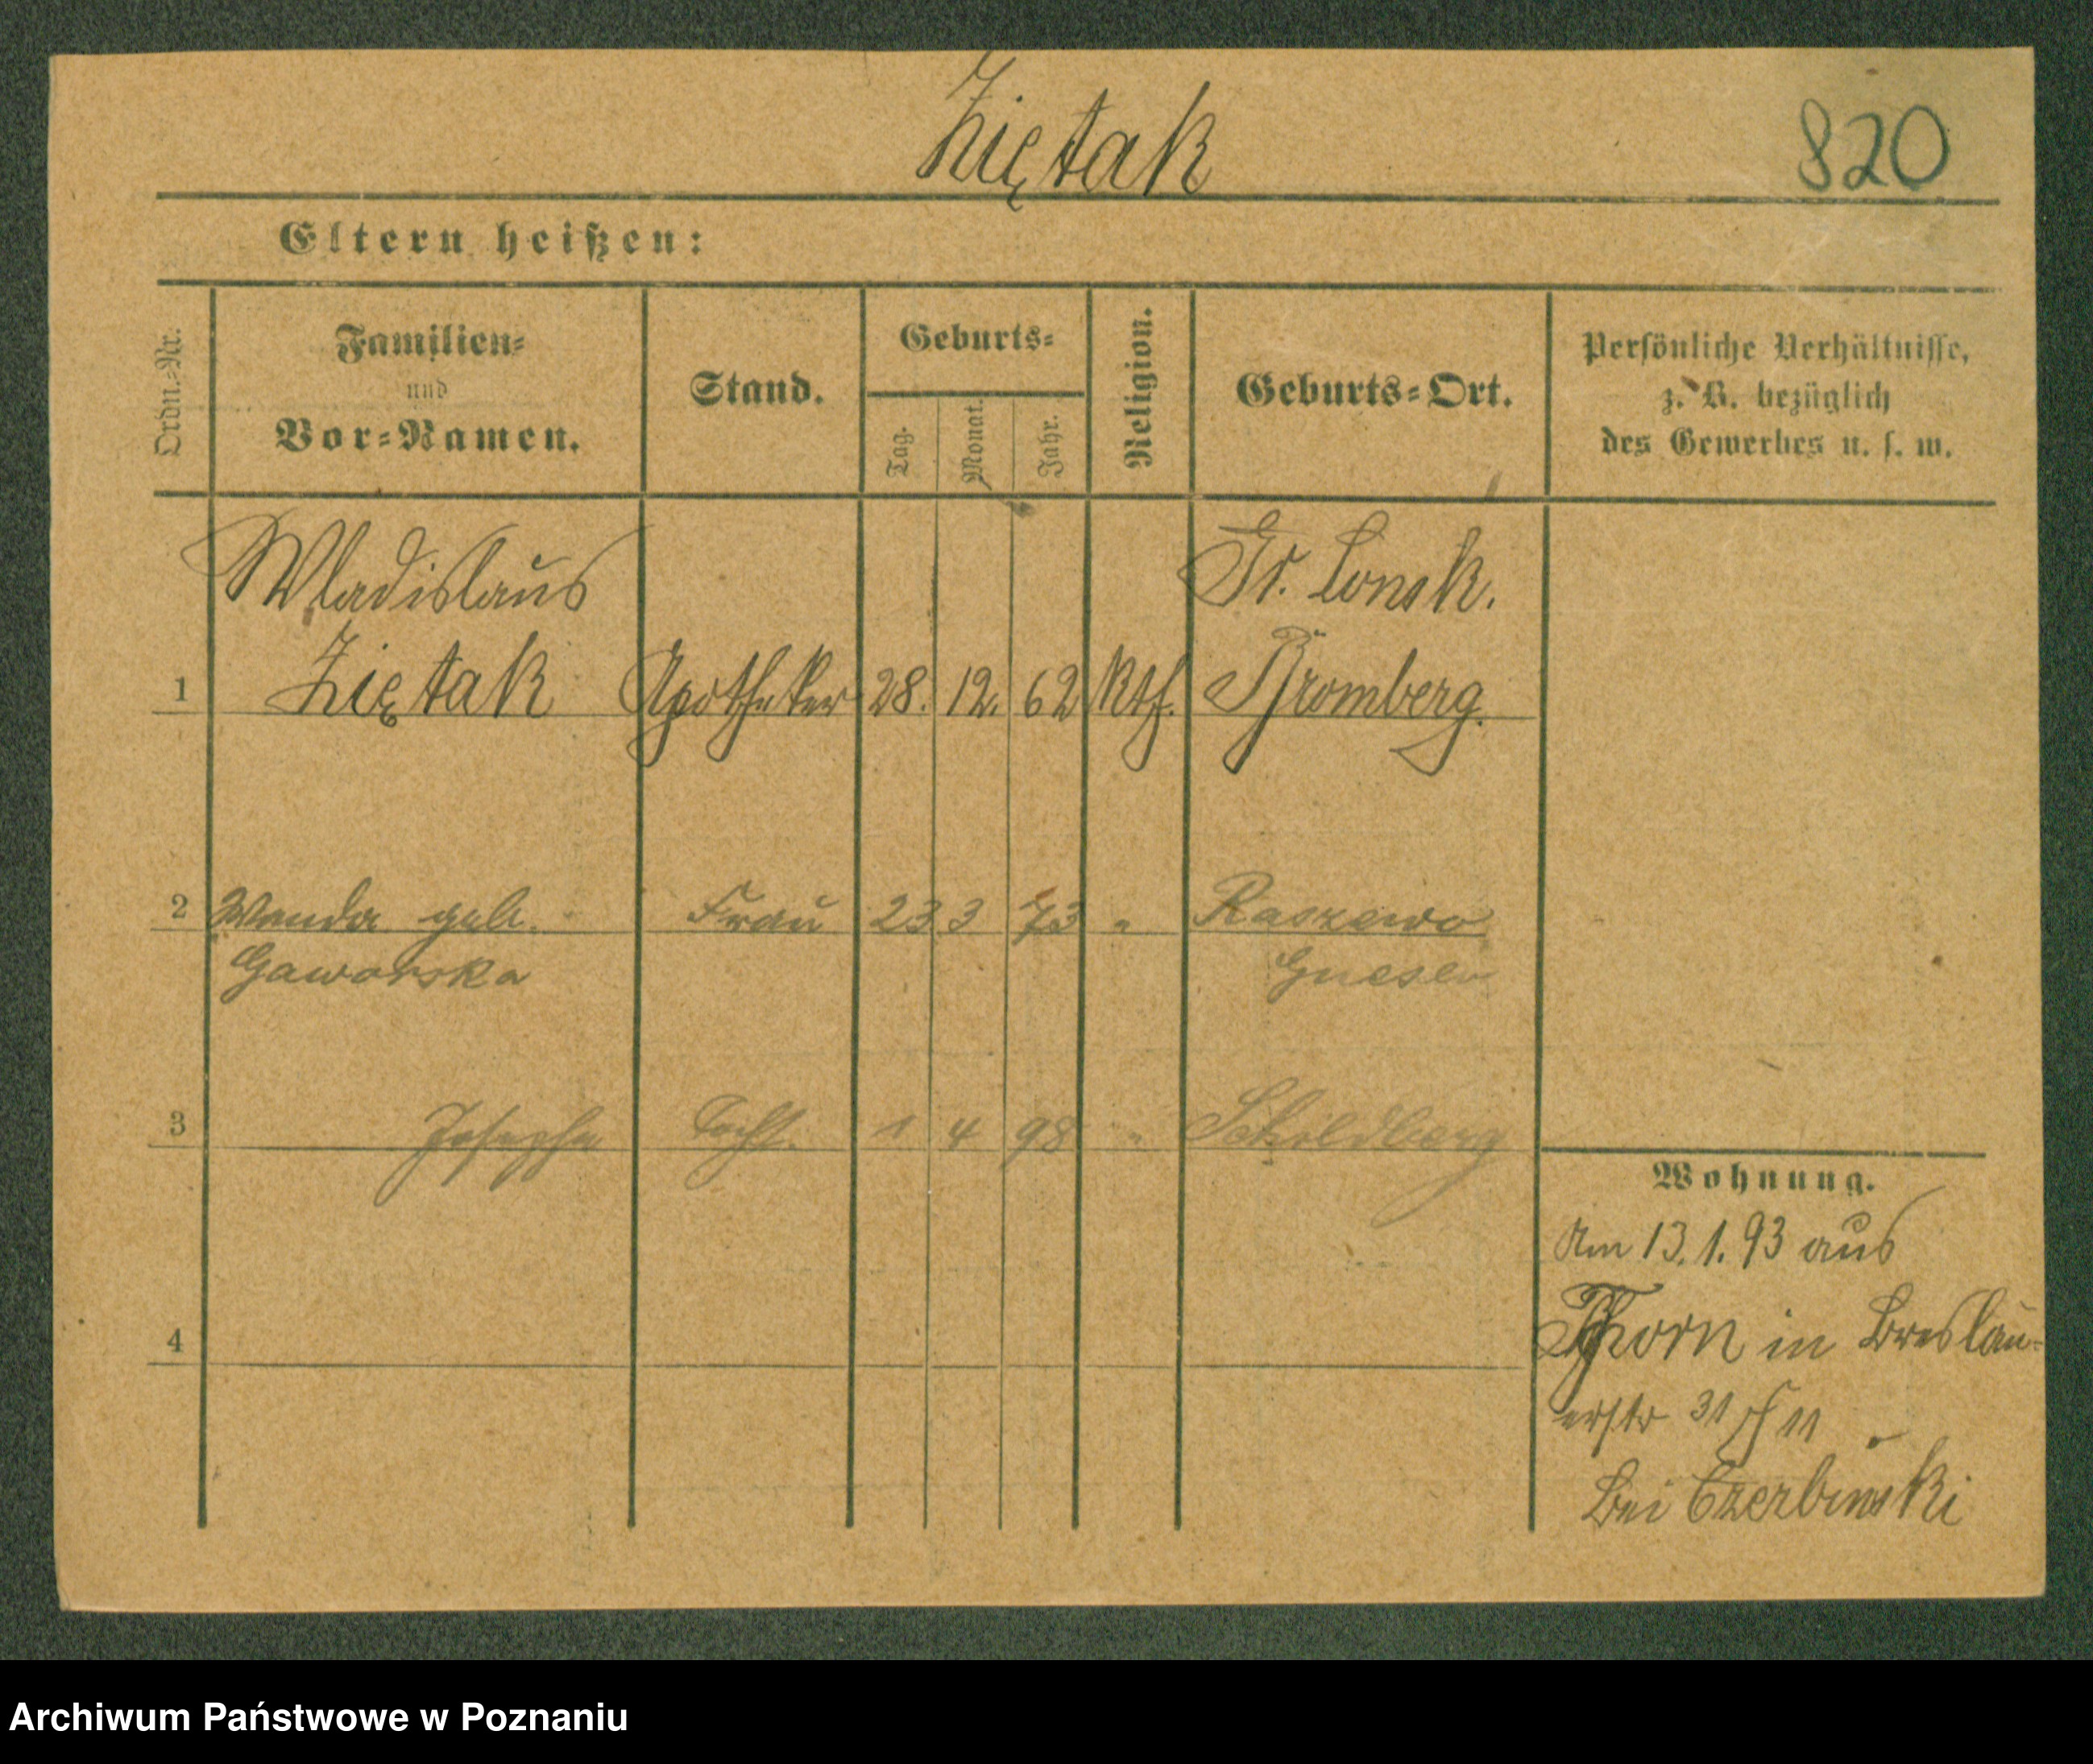 Ziętak
820
Eltern heißen:
Ordn.-Nr.
Familien-
und
Vor-Namen.
Stand.
Geburts-
Tag.
Monat.
Jahr.
Religion.
Geburts-Ort.
Persönliche Verhältnisse,
z. B. bezüglich
des Gewerbes u. s. w.
Wladislaus
Gr. Lonsk.
1 Ziętak Apotheker 28. 12. 62 Kth. Bromberg.
2 Wanda geb. Frau 23 3 73 " Raszewo
Gaworska Gnesen
3 Josepha Tocht. 1 4 98 " Schildberg
4
Wohnung.
Am 13.1.93 aus
Thorn in Breslau-
erstr 31 11
bei Czerbinski
Archiwum Państwowe w Poznaniu